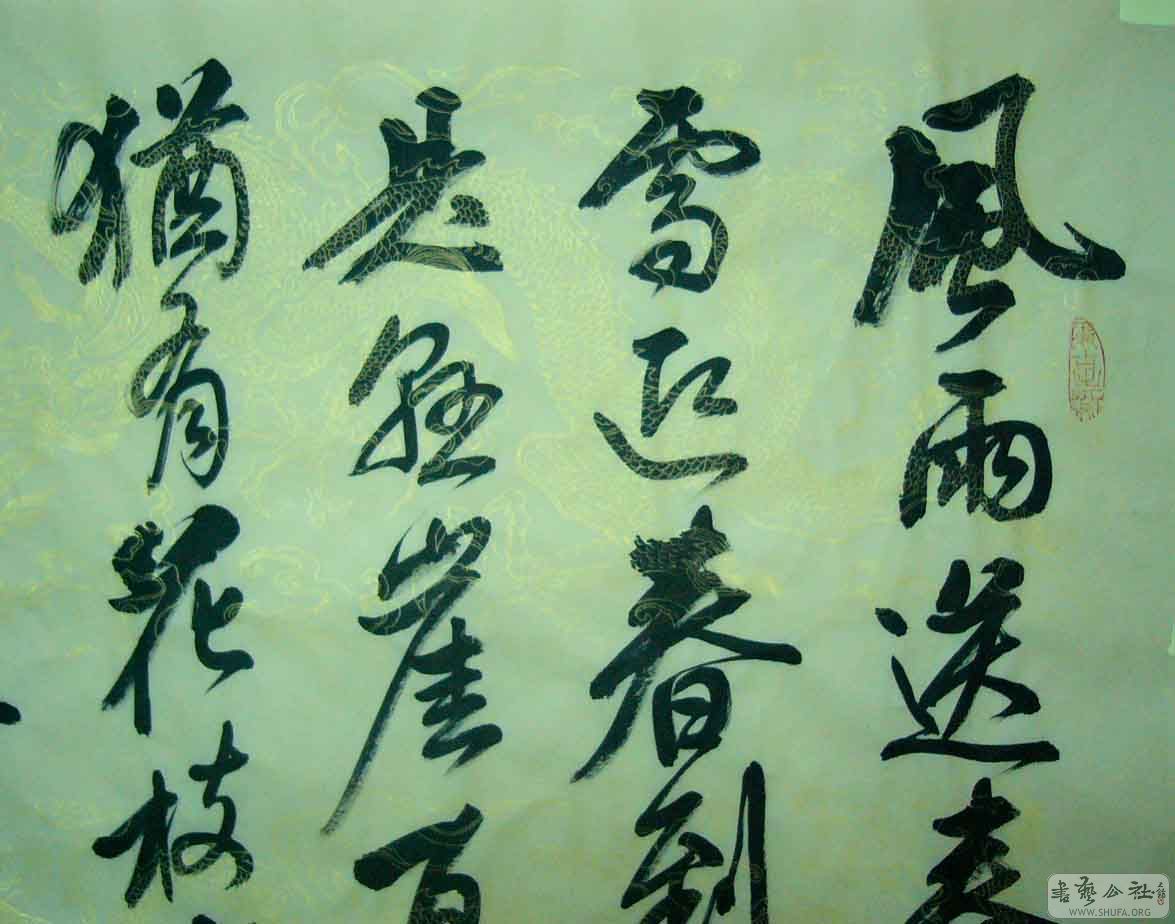 風雨送春
雪迎春到
是懸崖百
猶有花枝
書藝公社
WWW.SHUFA.ORG